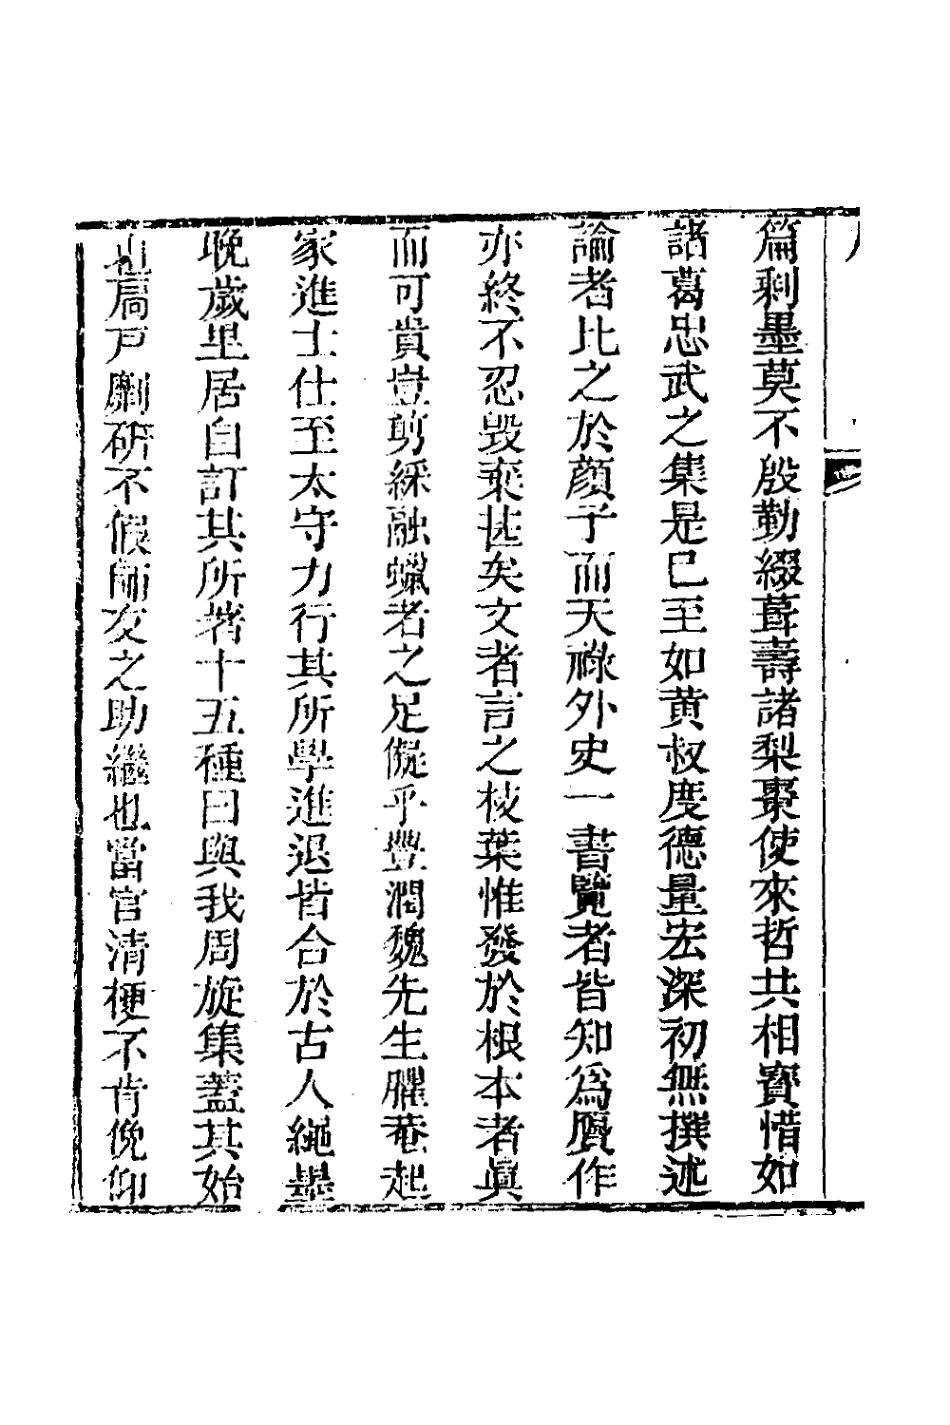 篇剩墨莫不殷勤綴葺壽諸梨棗使來哲共相寳惜如
諸葛忠武之集是已至如黄叔度德量宏深初無撰述
論者比之於顔子而天祿外史一書覽者皆知爲贋作
亦終不忍毁棄甚矣文者言之枝葉惟發於根本者眞
而可貴豈剪綵融蠟者之足儗乎豐潤魏先生臞菴起
家進士仕至太守力行其所學進退皆合於古人繩墨
晩歲里居自訂其所著十五種曰與我周旋集蓋其始
也扃戸劘硏不假師友之助繼也當官清梗不肯俛仰